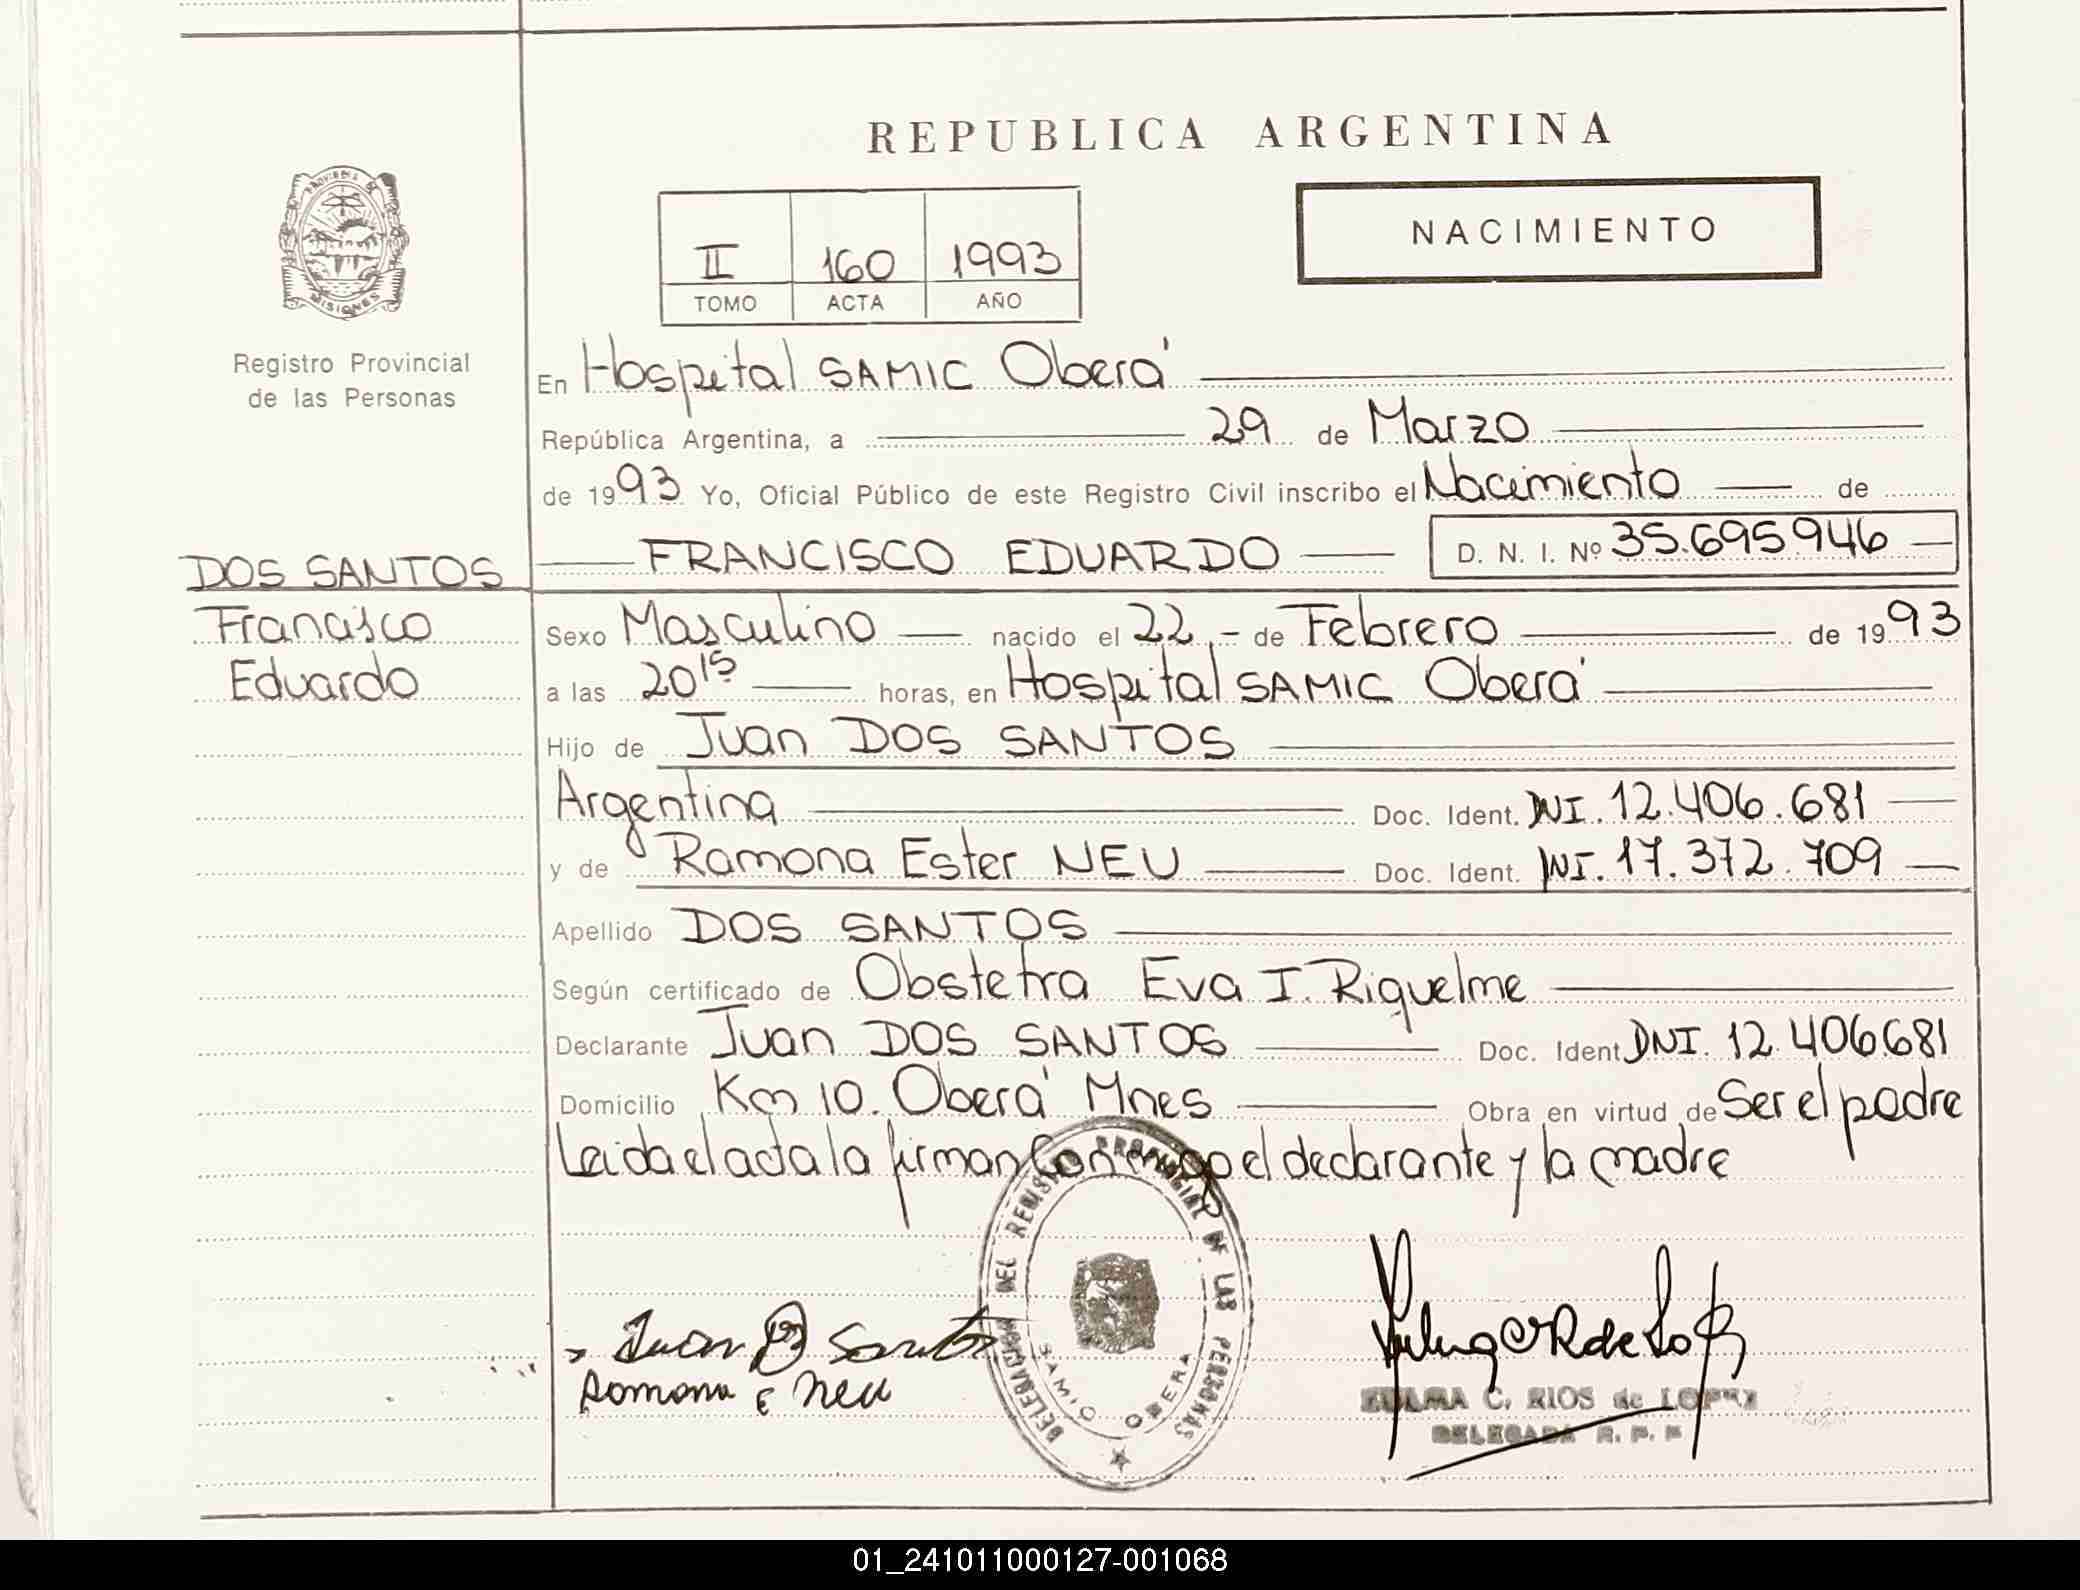 REPUBLICA ARGENTINA
PROVINCIA DE
MISIONES
Registro Provincial
de las Personas
NACIMIENTO
II 160 1993
TOMO ACTA AÑO
En Hospital SAMIC Oberá
República Argentina, a 29 de Marzo
de 1993 Yo, Oficial Público de este Registro Civil inscribo el Nacimiento de
DOS SANTOS FRANCISCO EDUARDO D. N. I. Nº 35.695946
Francisco Sexo Masculino nacido el 22.- de Febrero de 1993
Eduardo a las 20 15 horas, en Hospital SAMIC Oberá
Hijo de Juan DOS SANTOS
Argentina Doc. Ident. DNI. 12.406.681
y de Ramona Ester NEU Doc. Ident. DNI. 17.372.709
Apellido DOS SANTOS
Según certificado de Obstetra Eva I. Riquelme
Declarante Juan DOS SANTOS Doc. Ident DNI. 12.406681
Domicilio Km 10. Oberá Mnes Obra en virtud de Ser el padre
Leida el acta la firman Conmigo el declarante y la madre
DELEGACION DEL REGISTRO PROVINCIAL DE LAS PERSONAS
SAMIC OBERA
Juan D Santos
Ramona E Neu
ZULMA C. RIOS de LOPEZ
DELEGADA R. P. P
01_241011000127-001068